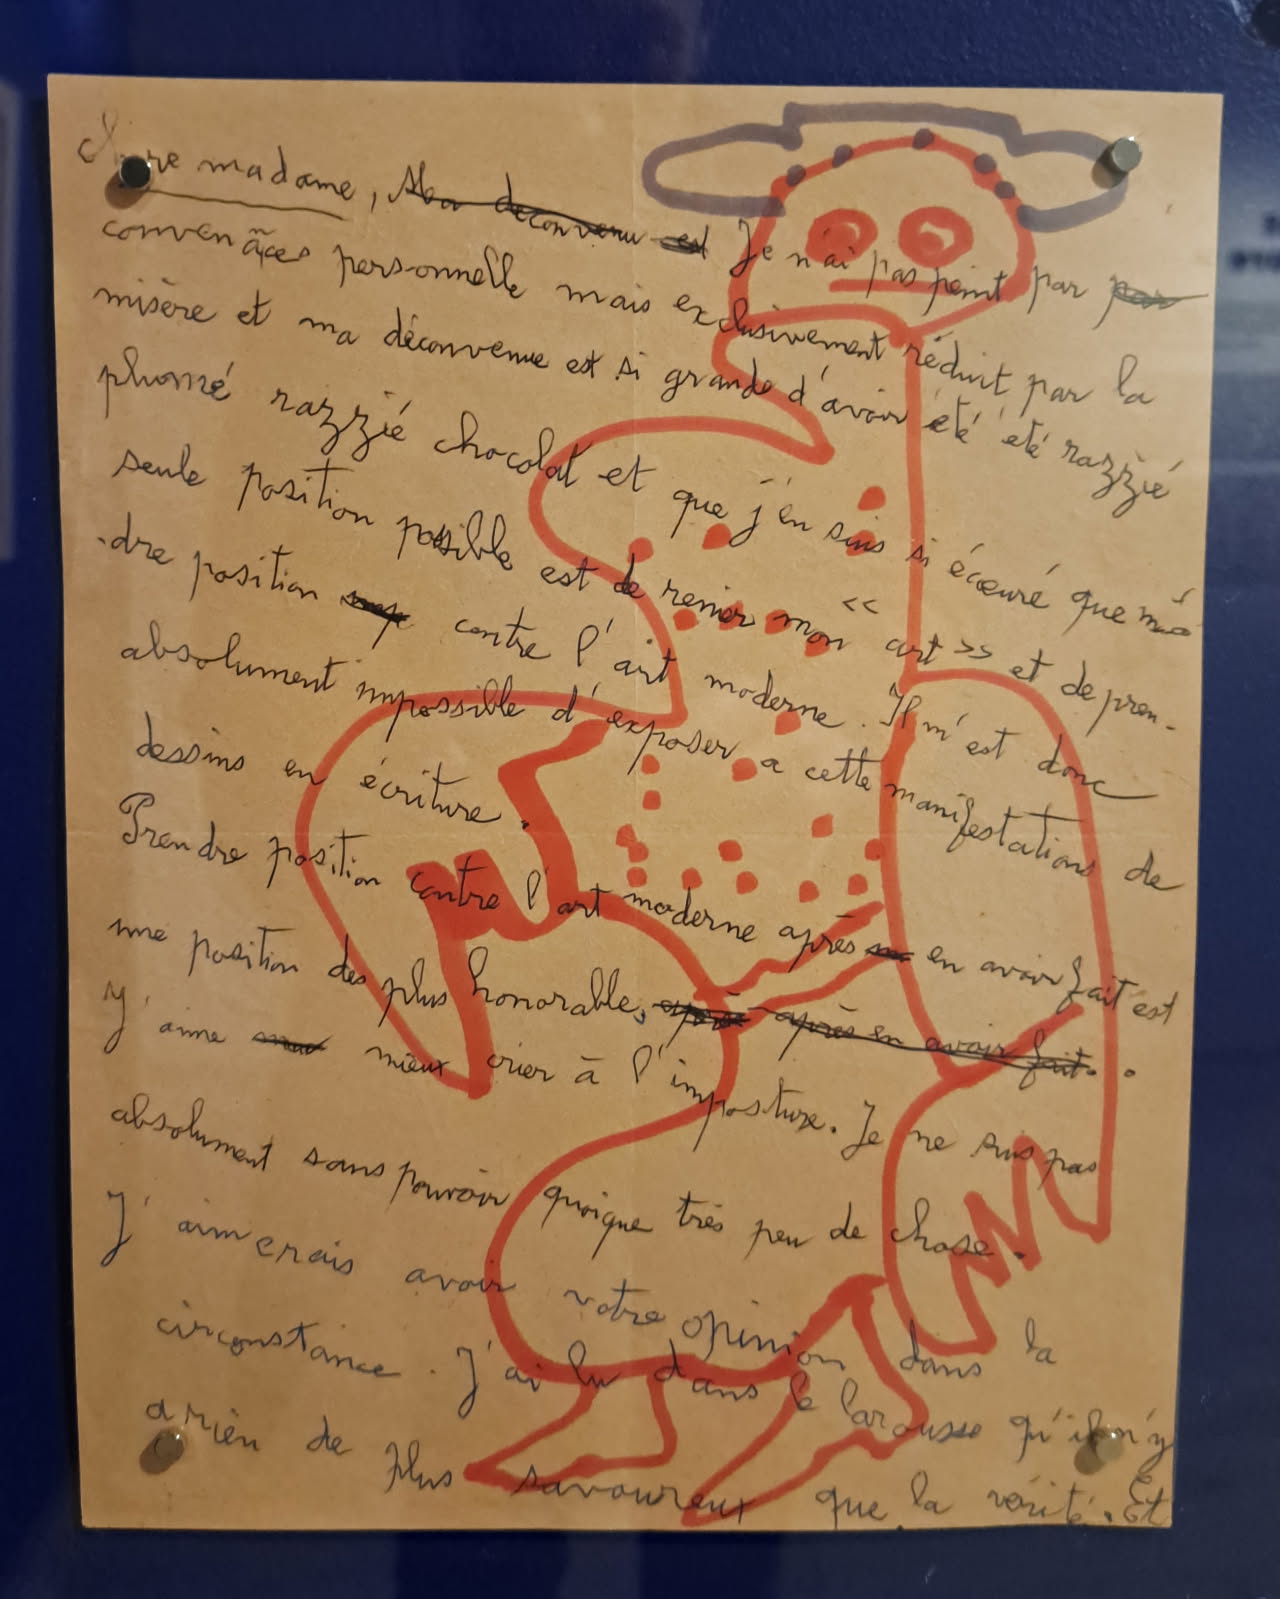 Chère madame, Ma deconvenu est Je n'ai pas peint par par
convenãces personnelle mais exclusivement réduit par la
misère et ma déconvenue est si grande d'avoir été été razzié
plumé razzié chocolat et que j'en suis si écœuré que ma
seule position possible est de renier mon << art >> et de pren-
-dre position contre l'art moderne. Il m'est donc
absolument impossible d'exposer a cette manifestations de
dessins en écriture.
Prendre position contre l'art moderne après en avoir fait est
une position des plus honorable, après après en avoir fait.
J'aime mieux crier à l'imposture. Je ne suis pas
absolument sans pouvoir quoique très peu de chose.
J'aimerais avoir votre opinion dans la
circonstance. J'ai lu dans le larousse qu'il n'y
a rien de plus savoureux que la vérité. Et